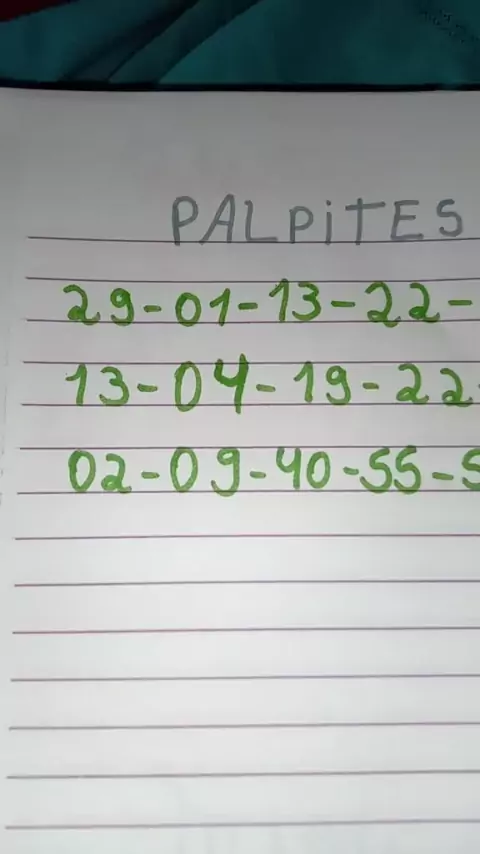 PALPiTES
29-01-13-22-
13-04-19-22-
02-09-40-55-